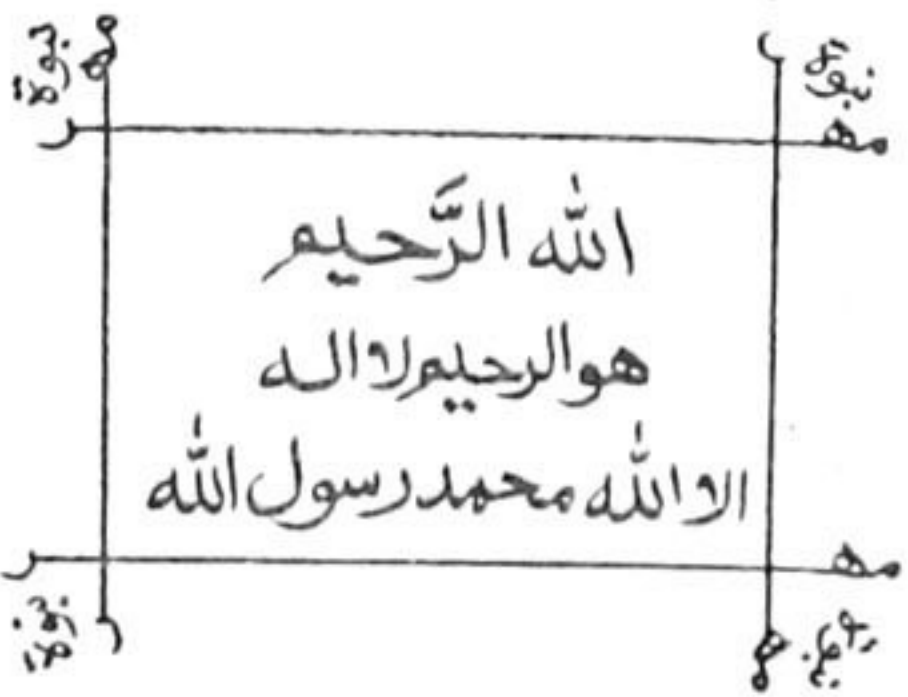 مهر نبوة
مهر نبوة
اللّٰه الرَّحيم
هو الرحيم لا اله
الا اللّٰه محمد رسول اللّٰه
مهر نبوة
مهر نبوة